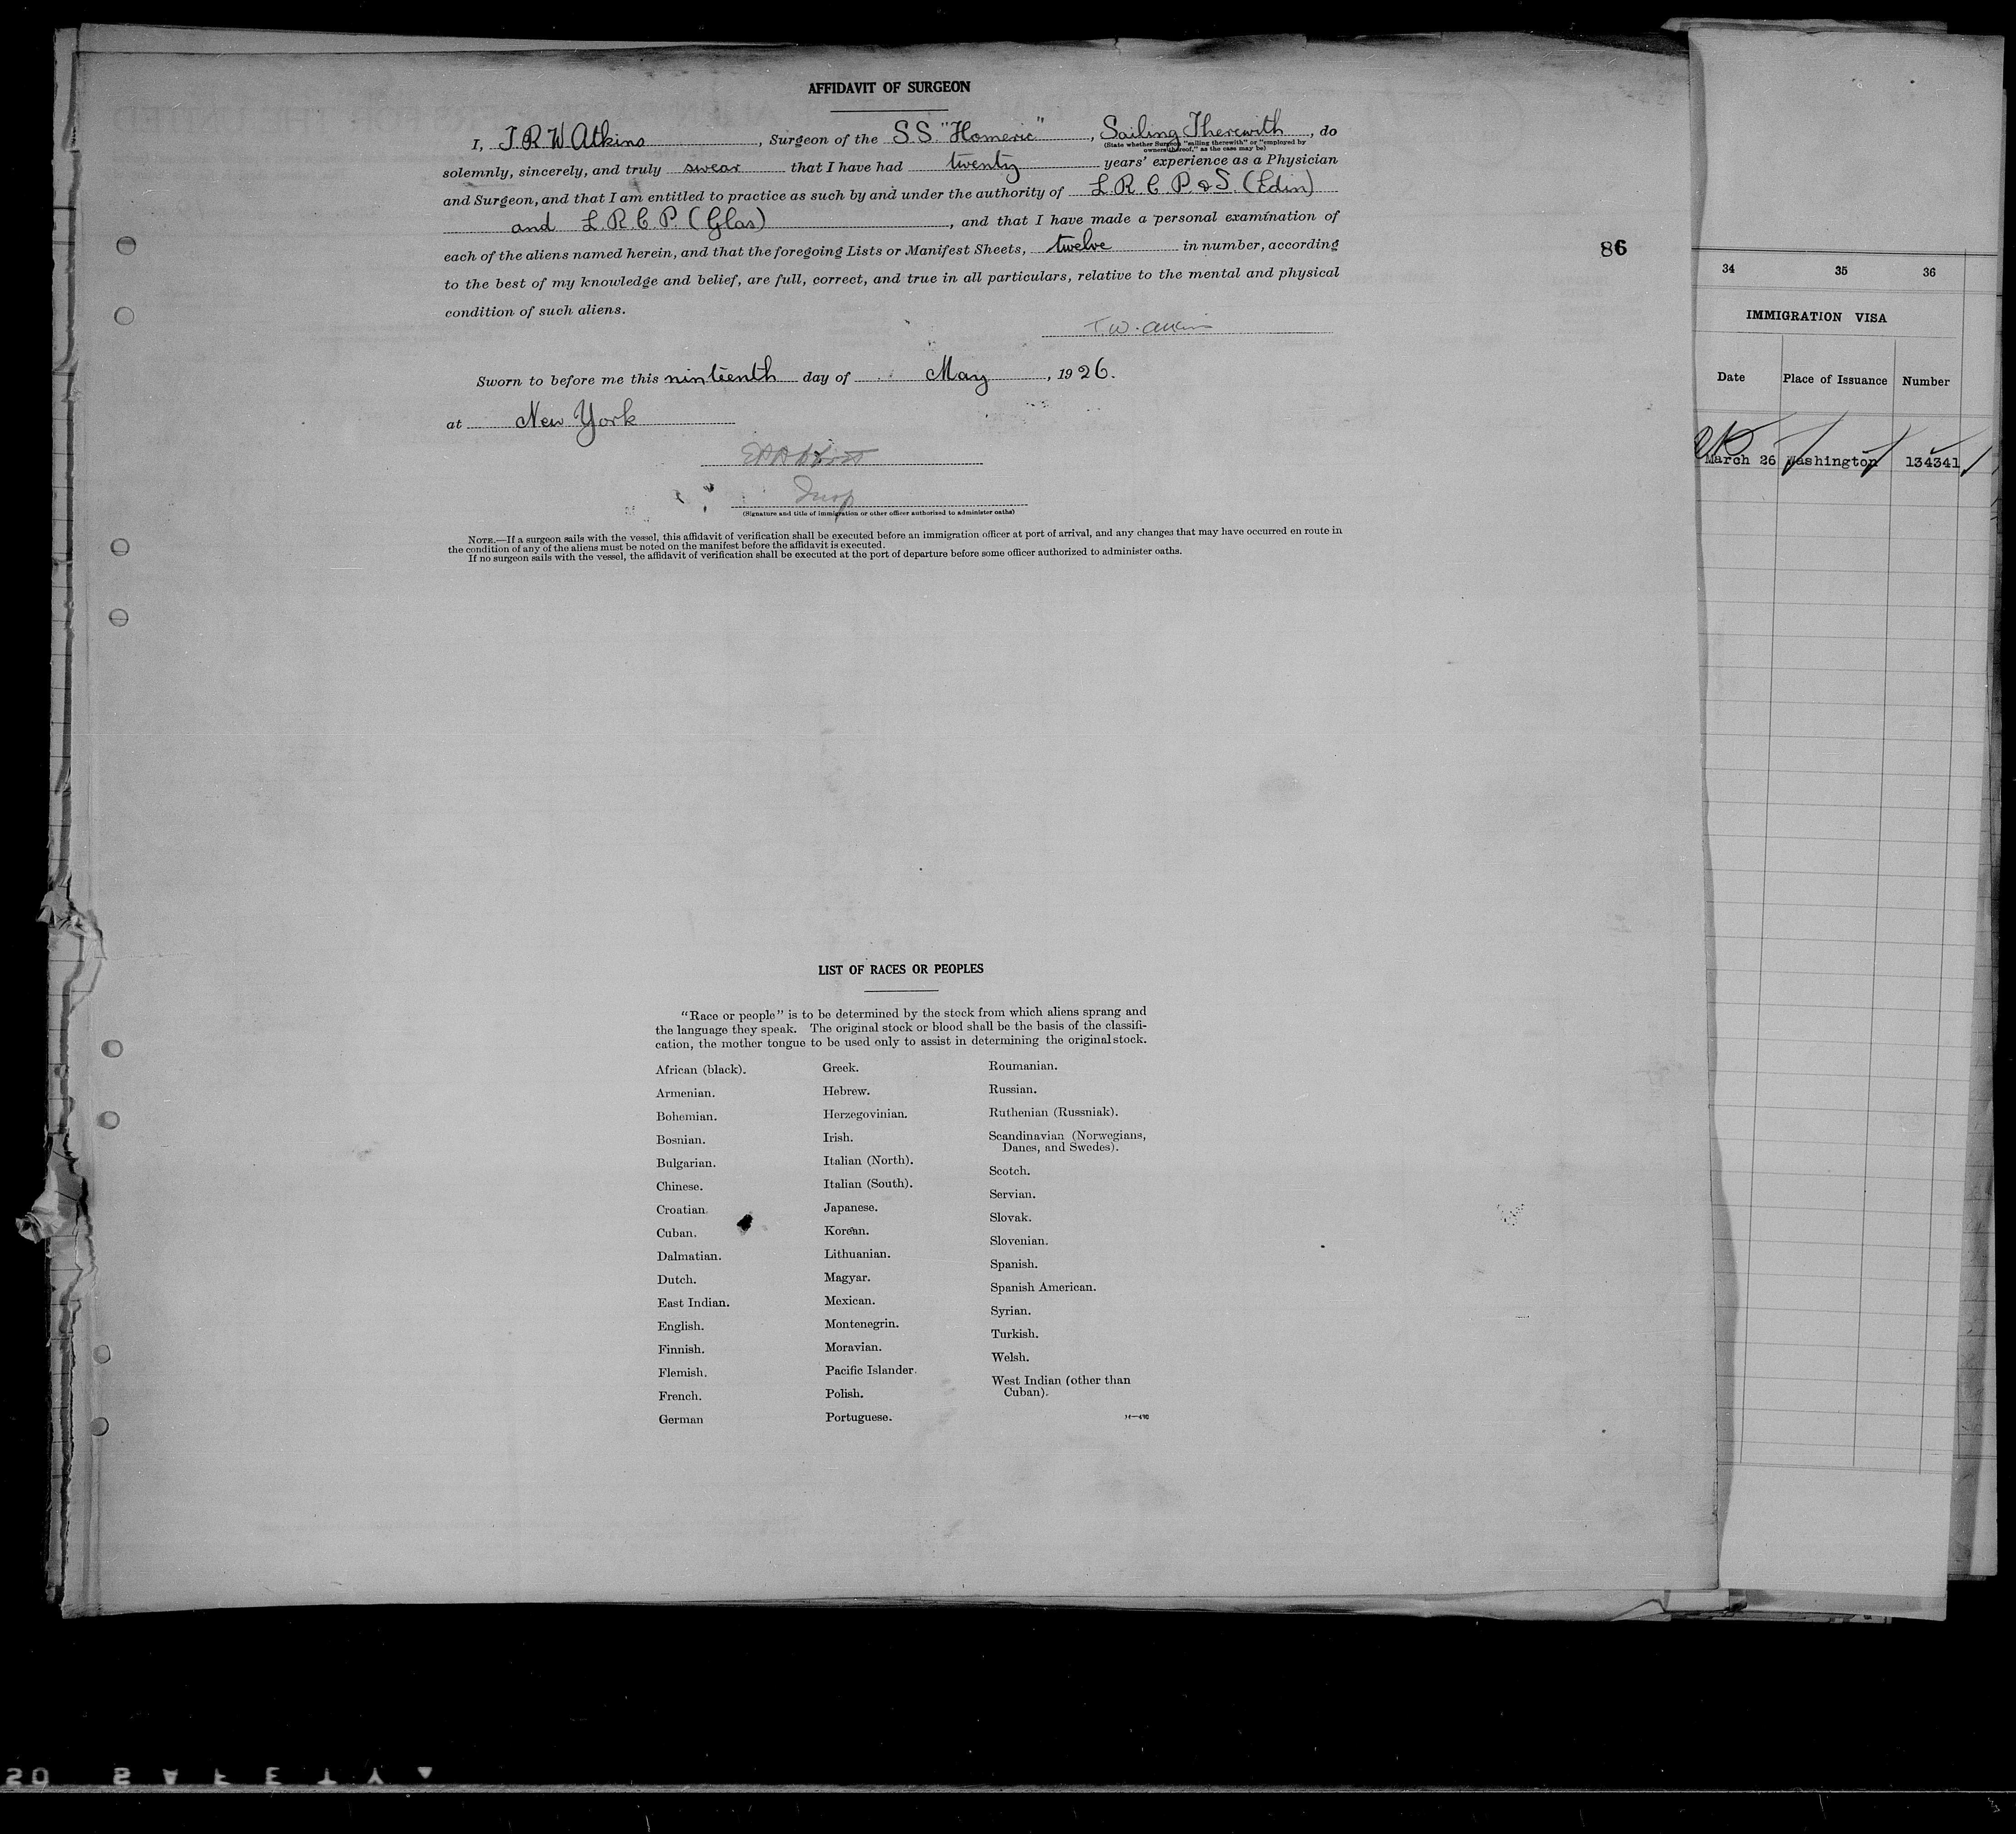 AFFIDAVIT OF SURGEON
I, J R W Atkins, Surgeon of the S.S. "Homeric", Sailing Therewith, do
(State whether Surgeon "sailing therewith" or "employed by
owners thereof," as the case may be)
solemnly, sincerely, and truly swear that I have had twenty years' experience as a Physician
and Surgeon, and that I am entitled to practice as such by and under the authority of L.R.C.P. & S. (Edin)
and L.R.C.P. (Glas), and that I have made a personal examination of
each of the aliens named herein, and that the foregoing Lists or Manifest Sheets, twelve in number, according
to the best of my knowledge and belief, are full, correct, and true in all particulars, relative to the mental and physical
condition of such aliens.
Sworn to before me this ninteenth day of May, 1926.
at New York
Insp
(Signature and title of immigration or other officer authorized to administer oaths)
NOTE.—If a surgeon sails with the vessel, this affidavit of verification shall be executed before an immigration officer at port of arrival, and any changes that may have occurred en route in
the condition of any of the aliens must be noted on the manifest before the affidavit is executed.
If no surgeon sails with the vessel, the affidavit of verification shall be executed at the port of departure before some officer authorized to administer oaths.
LIST OF RACES OR PEOPLES
"Race or people" is to be determined by the stock from which aliens sprang and
the language they speak. The original stock or blood shall be the basis of the classifi-
cation, the mother tongue to be used only to assist in determining the original stock.
African (black).
Armenian.
Bohemian.
Bosnian.
Bulgarian.
Chinese.
Croatian.
Cuban.
Dalmatian.
Dutch.
East Indian.
English.
Finnish.
Flemish.
French.
German
Greek.
Hebrew.
Herzegovinian.
Irish.
Italian (North).
Italian (South).
Japanese.
Korean.
Lithuanian.
Magyar.
Mexican.
Montenegrin.
Moravian.
Pacific Islander.
Polish.
Portuguese.
Roumanian.
Russian.
Ruthenian (Russniak).
Scandinavian (Norwegians,
Danes, and Swedes).
Scotch.
Servian.
Slovak.
Slovenian.
Spanish.
Spanish American.
Syrian.
Turkish.
Welsh.
West Indian (other than
Cuban).
86
34 35 36
IMMIGRATION VISA
Date Place of Issuance Number
March 26 Washington 134341
SAFETY